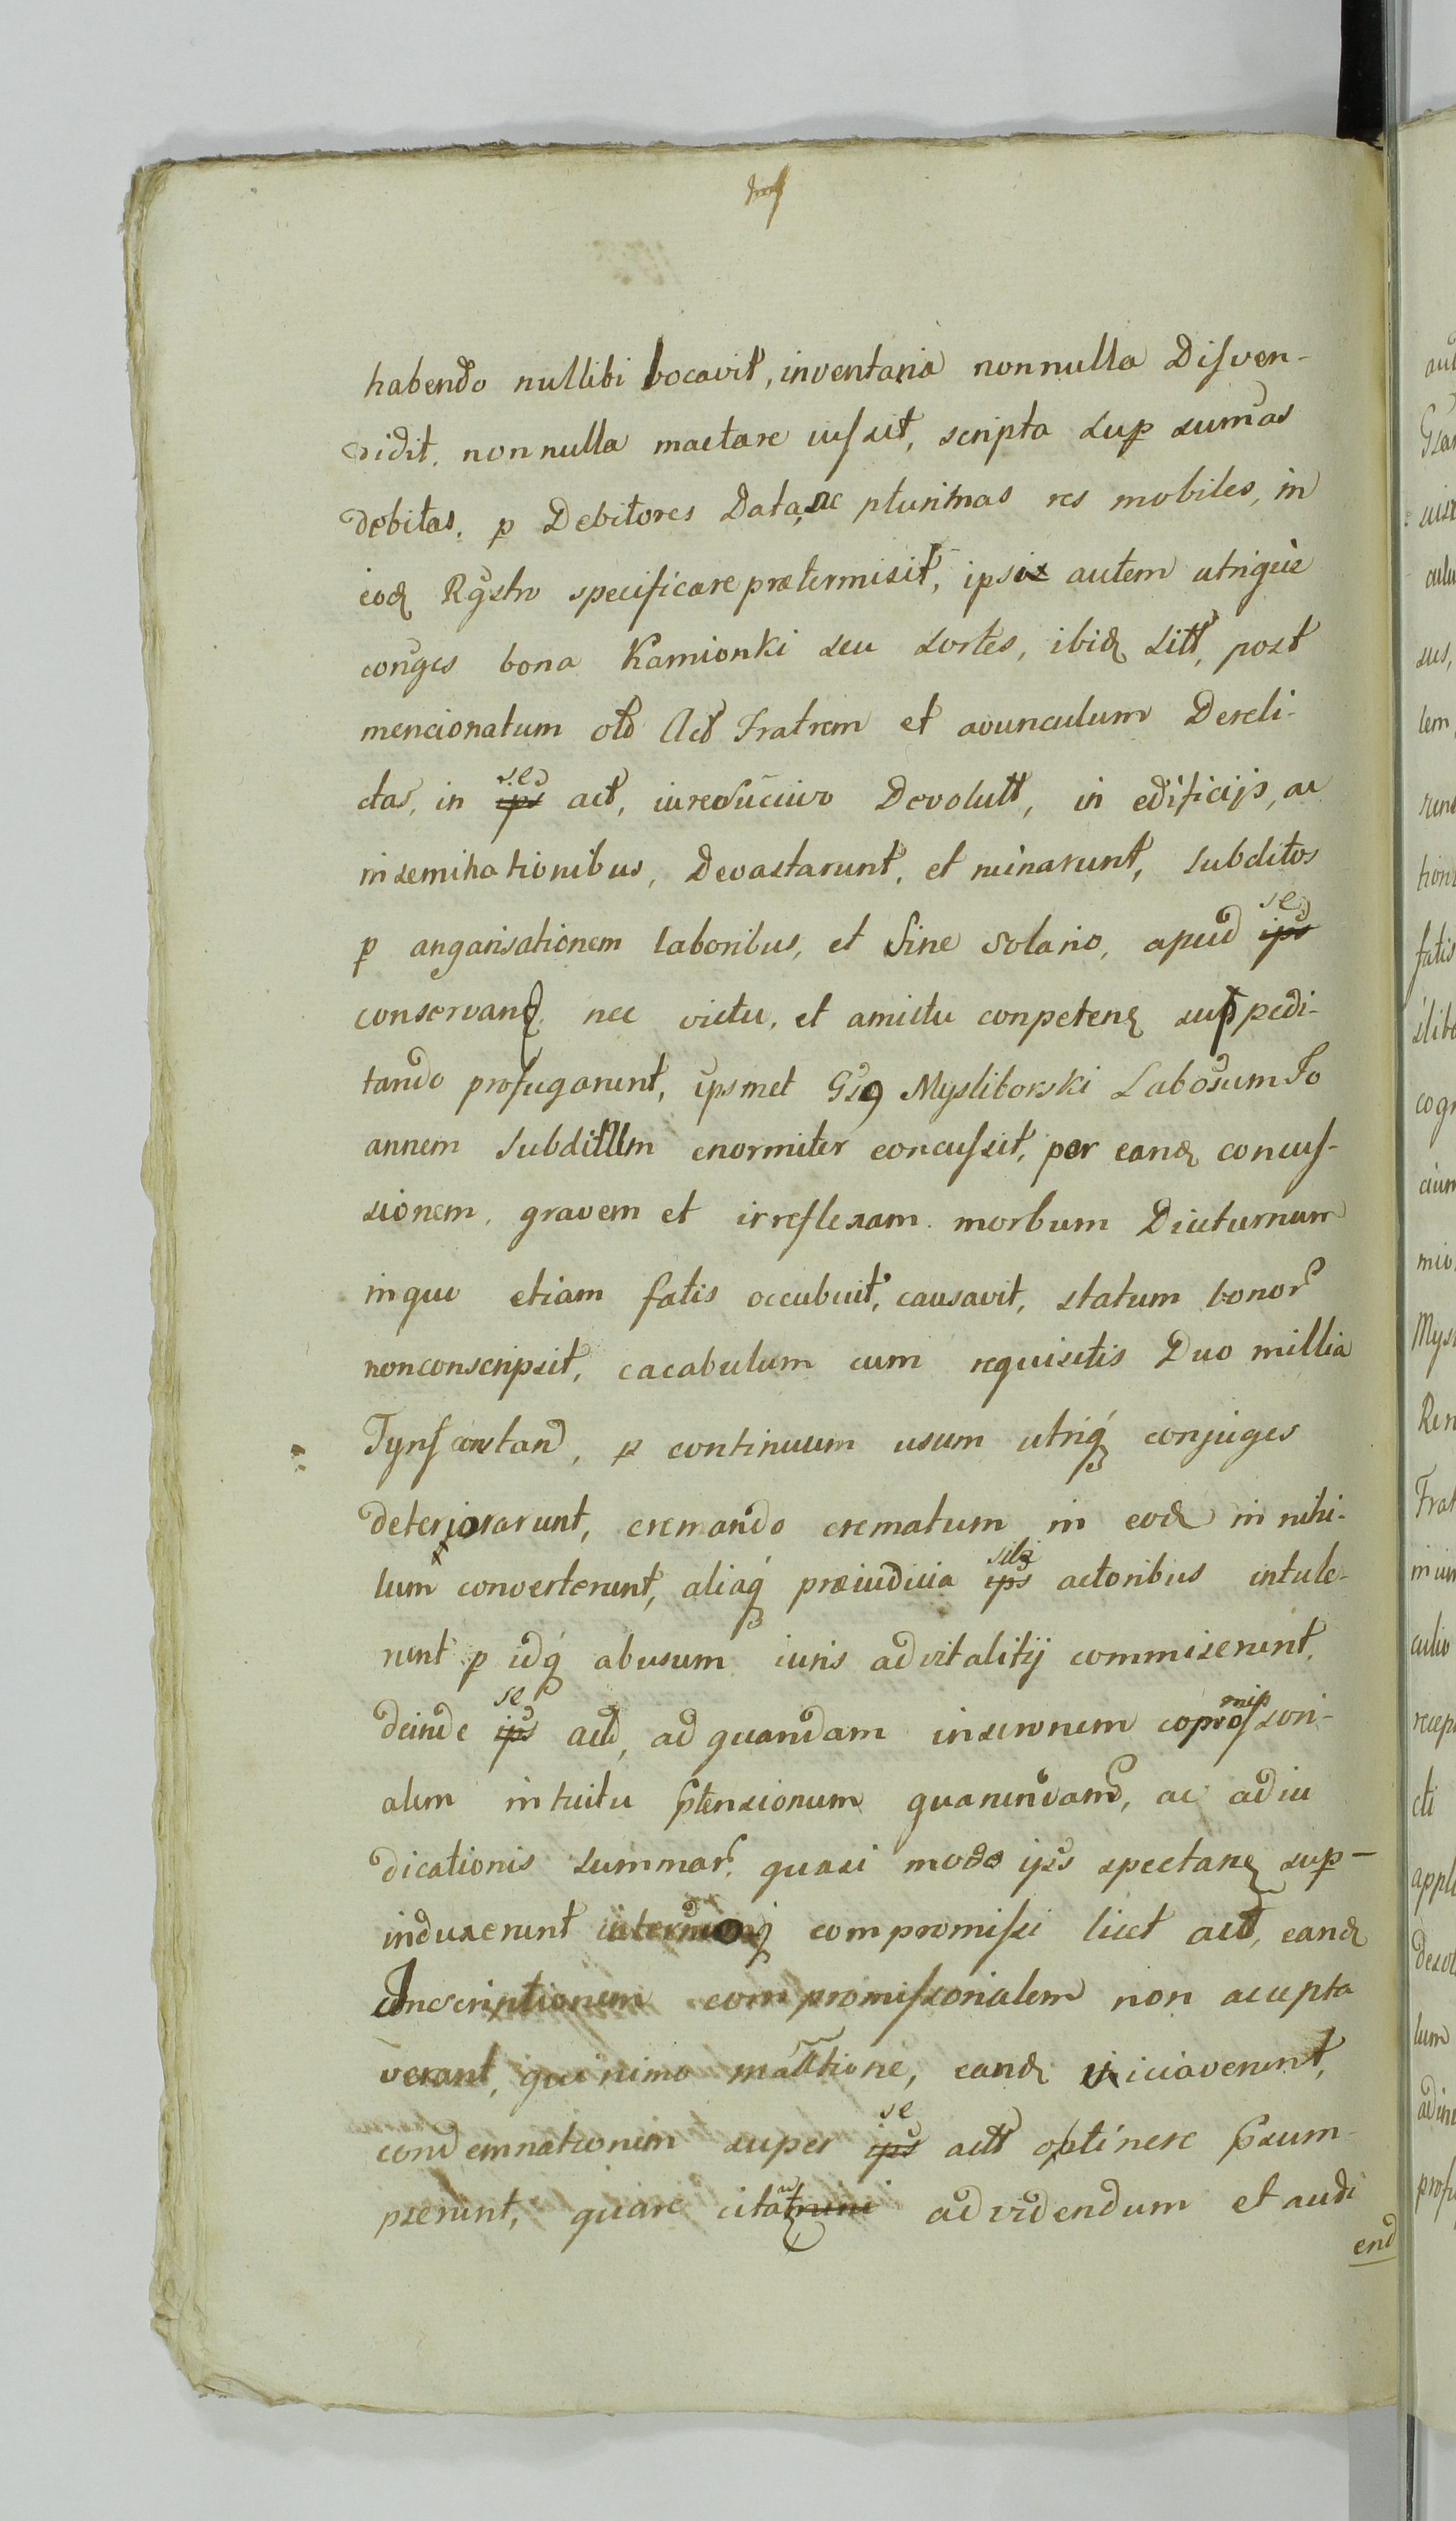 habendo nullibi locavit, inventaria nonnulla Disven-
didit, nonnulla mactare iussit, scripta sup sumas
debitas, p Debitores Data, ac plurimas res mobiles, in
eod Rgstro specificare prætermisit, ipsi autem utrique
conges bona Kamionki seu sortes, ibid sitt, post
mencionatum olb Act Fratrem et avunculum Dereli-
ctas, in se ips act, iure succivo Devolutt, in edificijs, ac
inseminationibus, Devastarunt, et ruinarunt, subditos
p angarisationem laboribus, et sine solario, apud se ips
conservand, nec victu, et amictu conpeten suppedi-
tando profugarunt, ipsmet Gsg Mysliborski Labosum Jo
annem subditum enormiter concussit, per eand concus-
sionem, gravem et irreflexam morbum Diuturnum
inquo etiam fatis occubuit, causavit, statum bonor
nonconscripsit, cacabulum cum requisitis Duo millia
Tynf constand, p continuum usum utriq conjuges
deteriorarunt, cremando crematum in eod in nihi-
lum converterunt, aliaq præiudicia sibi ips actoribus intule-
runt p idq abusum iuris advitalitij commiserunt,
deinde se ips act, ad quandam inscronem copromissori-
alem intuitu ptensionum quarundam, ac adiu
dicationis summar, quasi modo ips spectan sup-
induxerunt compromissi licet act, eand
Inscriptionem compromissorialem non accepta
verant, quinimo eand viciaverunt,
condemnationem super se ips actt optinere psum-
pserunt, quare citat ad videndum et audi
end